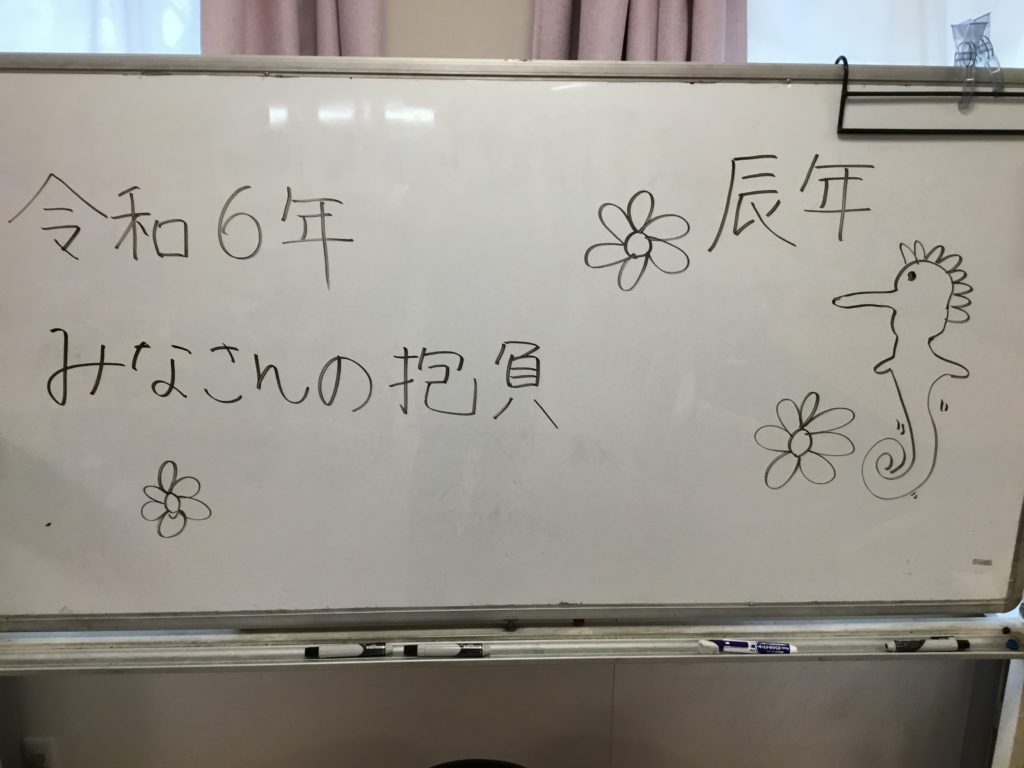 令和6年
辰年
みなさんの抱負